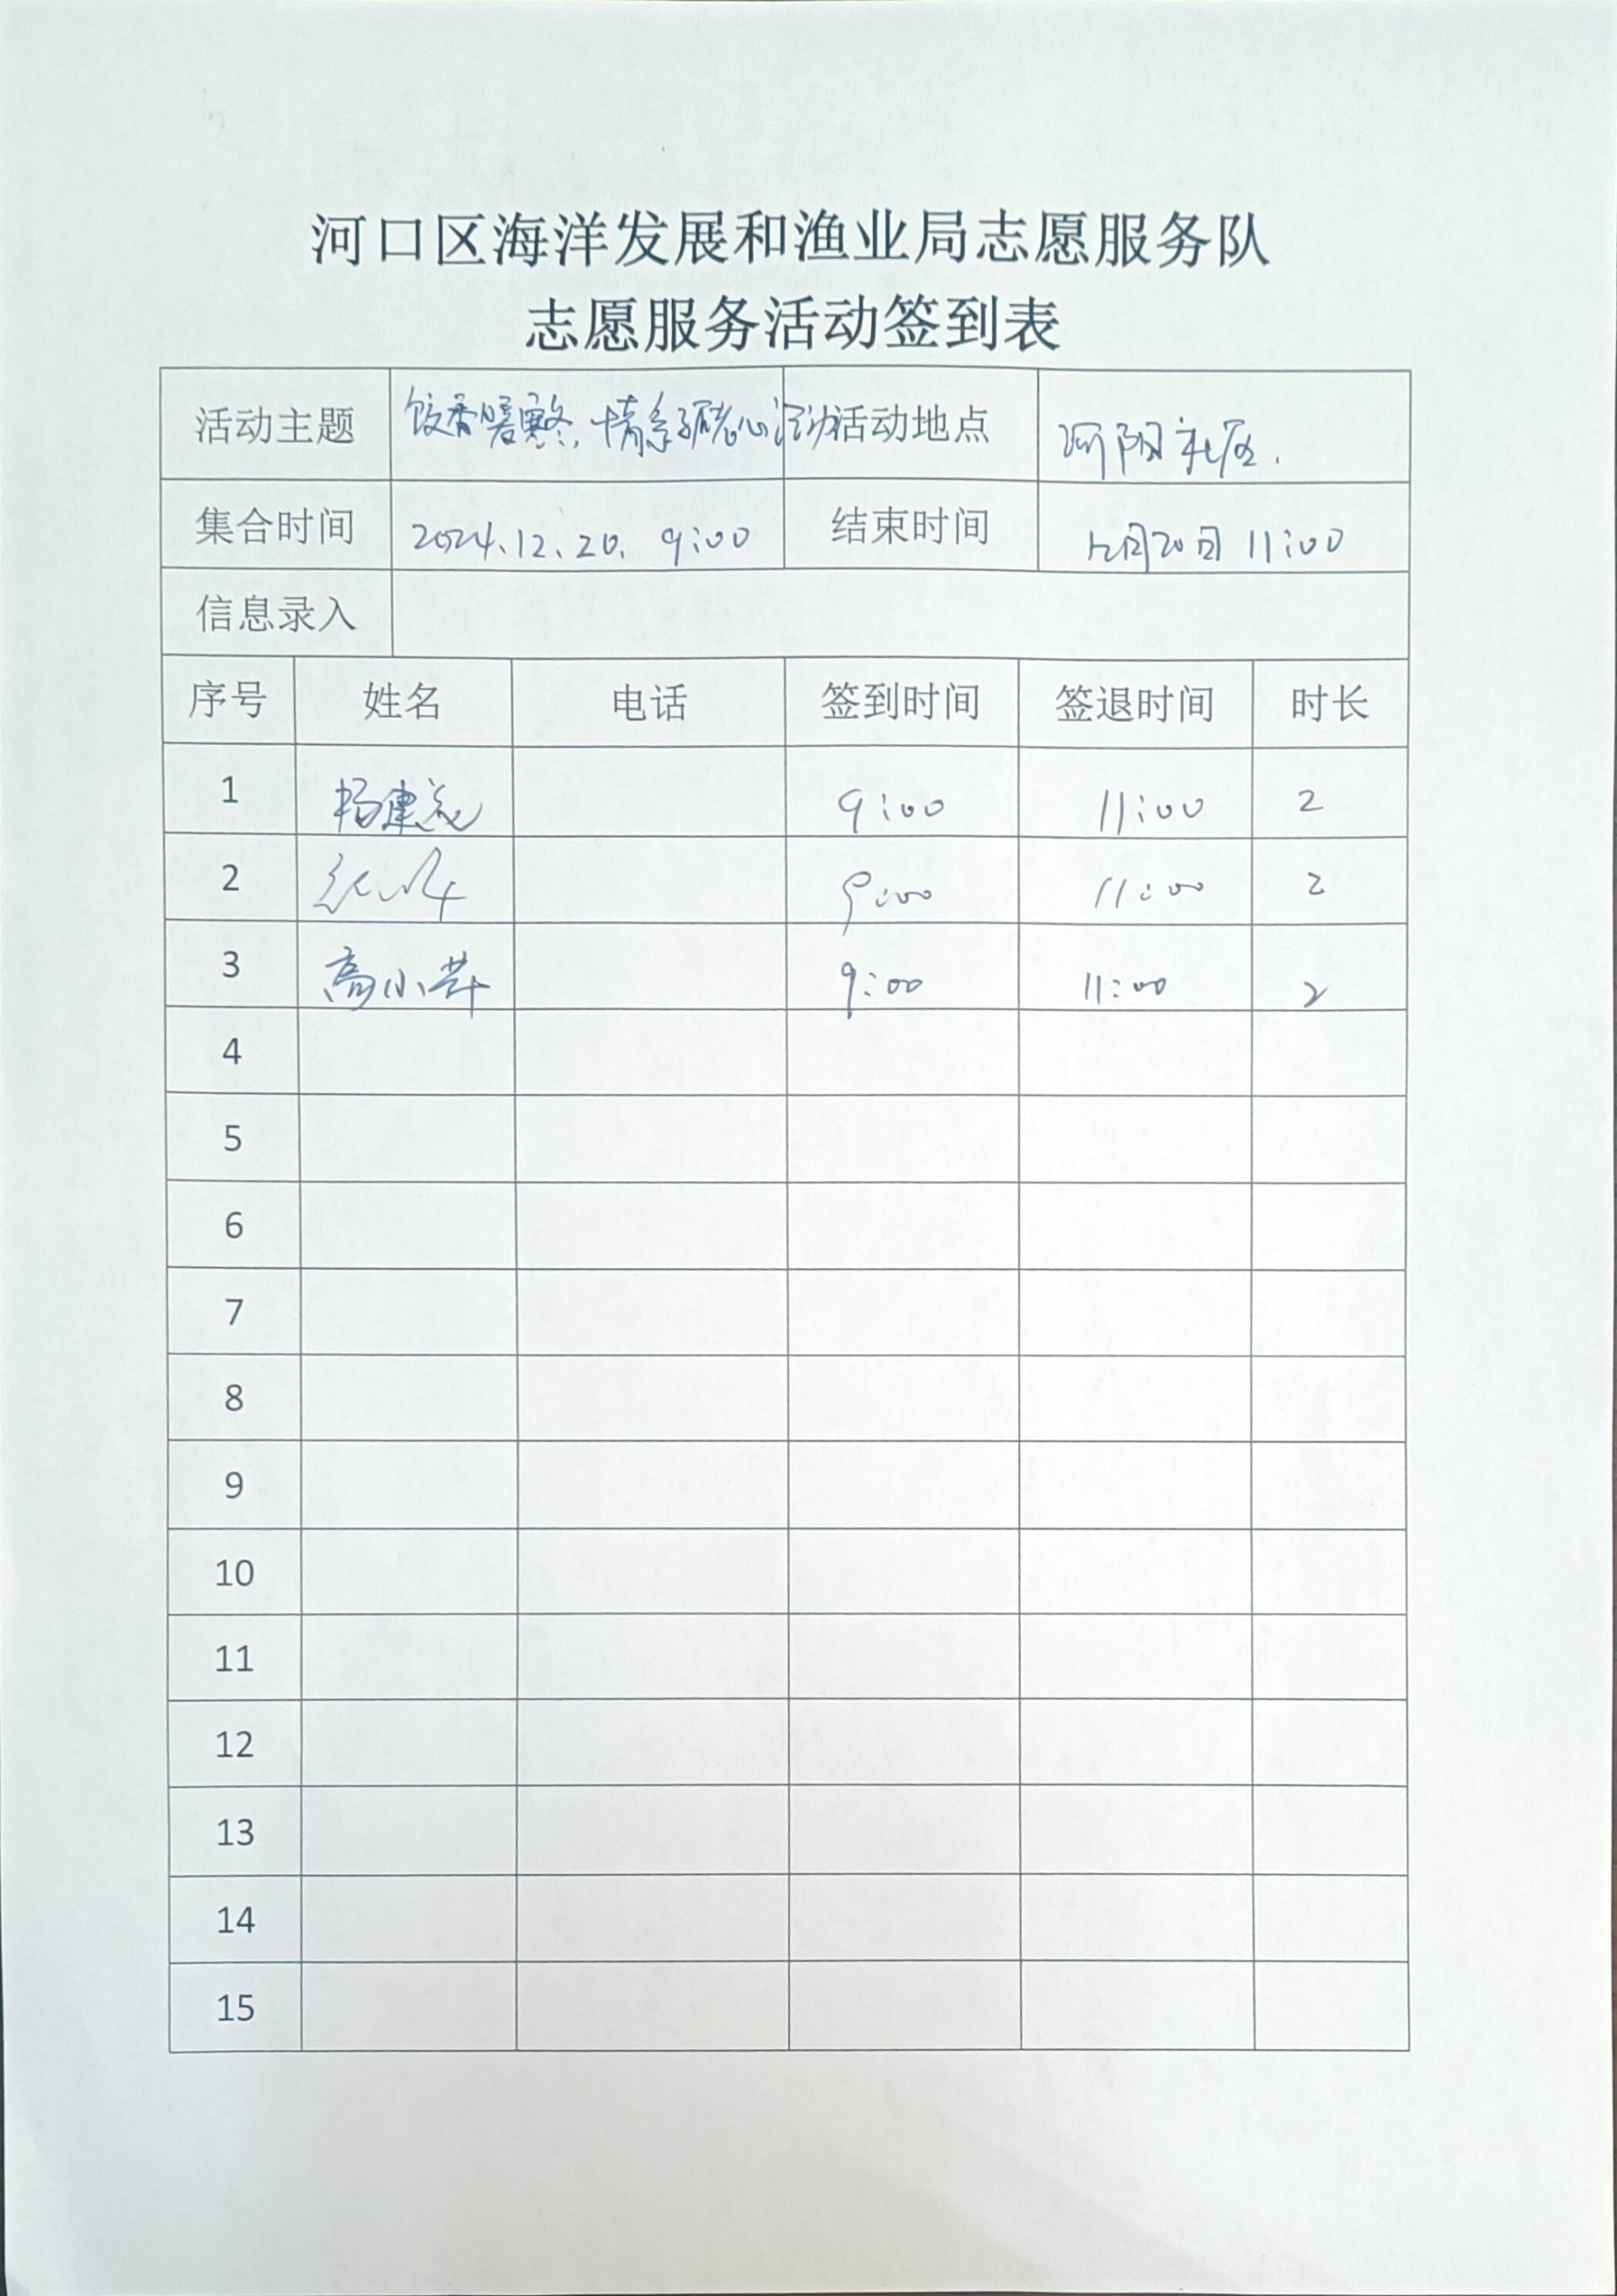 河口区海洋发展和渔业局志愿服务队
志愿服务活动签到表
活动主题 饺香暖寒冬,情系居老心活动 活动地点 河阳社区.
集合时间 2024.12.20. 9:00 结束时间 12月20日 11:00
信息录入
序号 姓名 电话 签到时间 签退时间 时长
1 杨建 9:00 11:00 2
2 9:00 11:00 2
3 高小 9:00 11:00 2
4
5
6
7
8
9
10
11
12
13
14
15